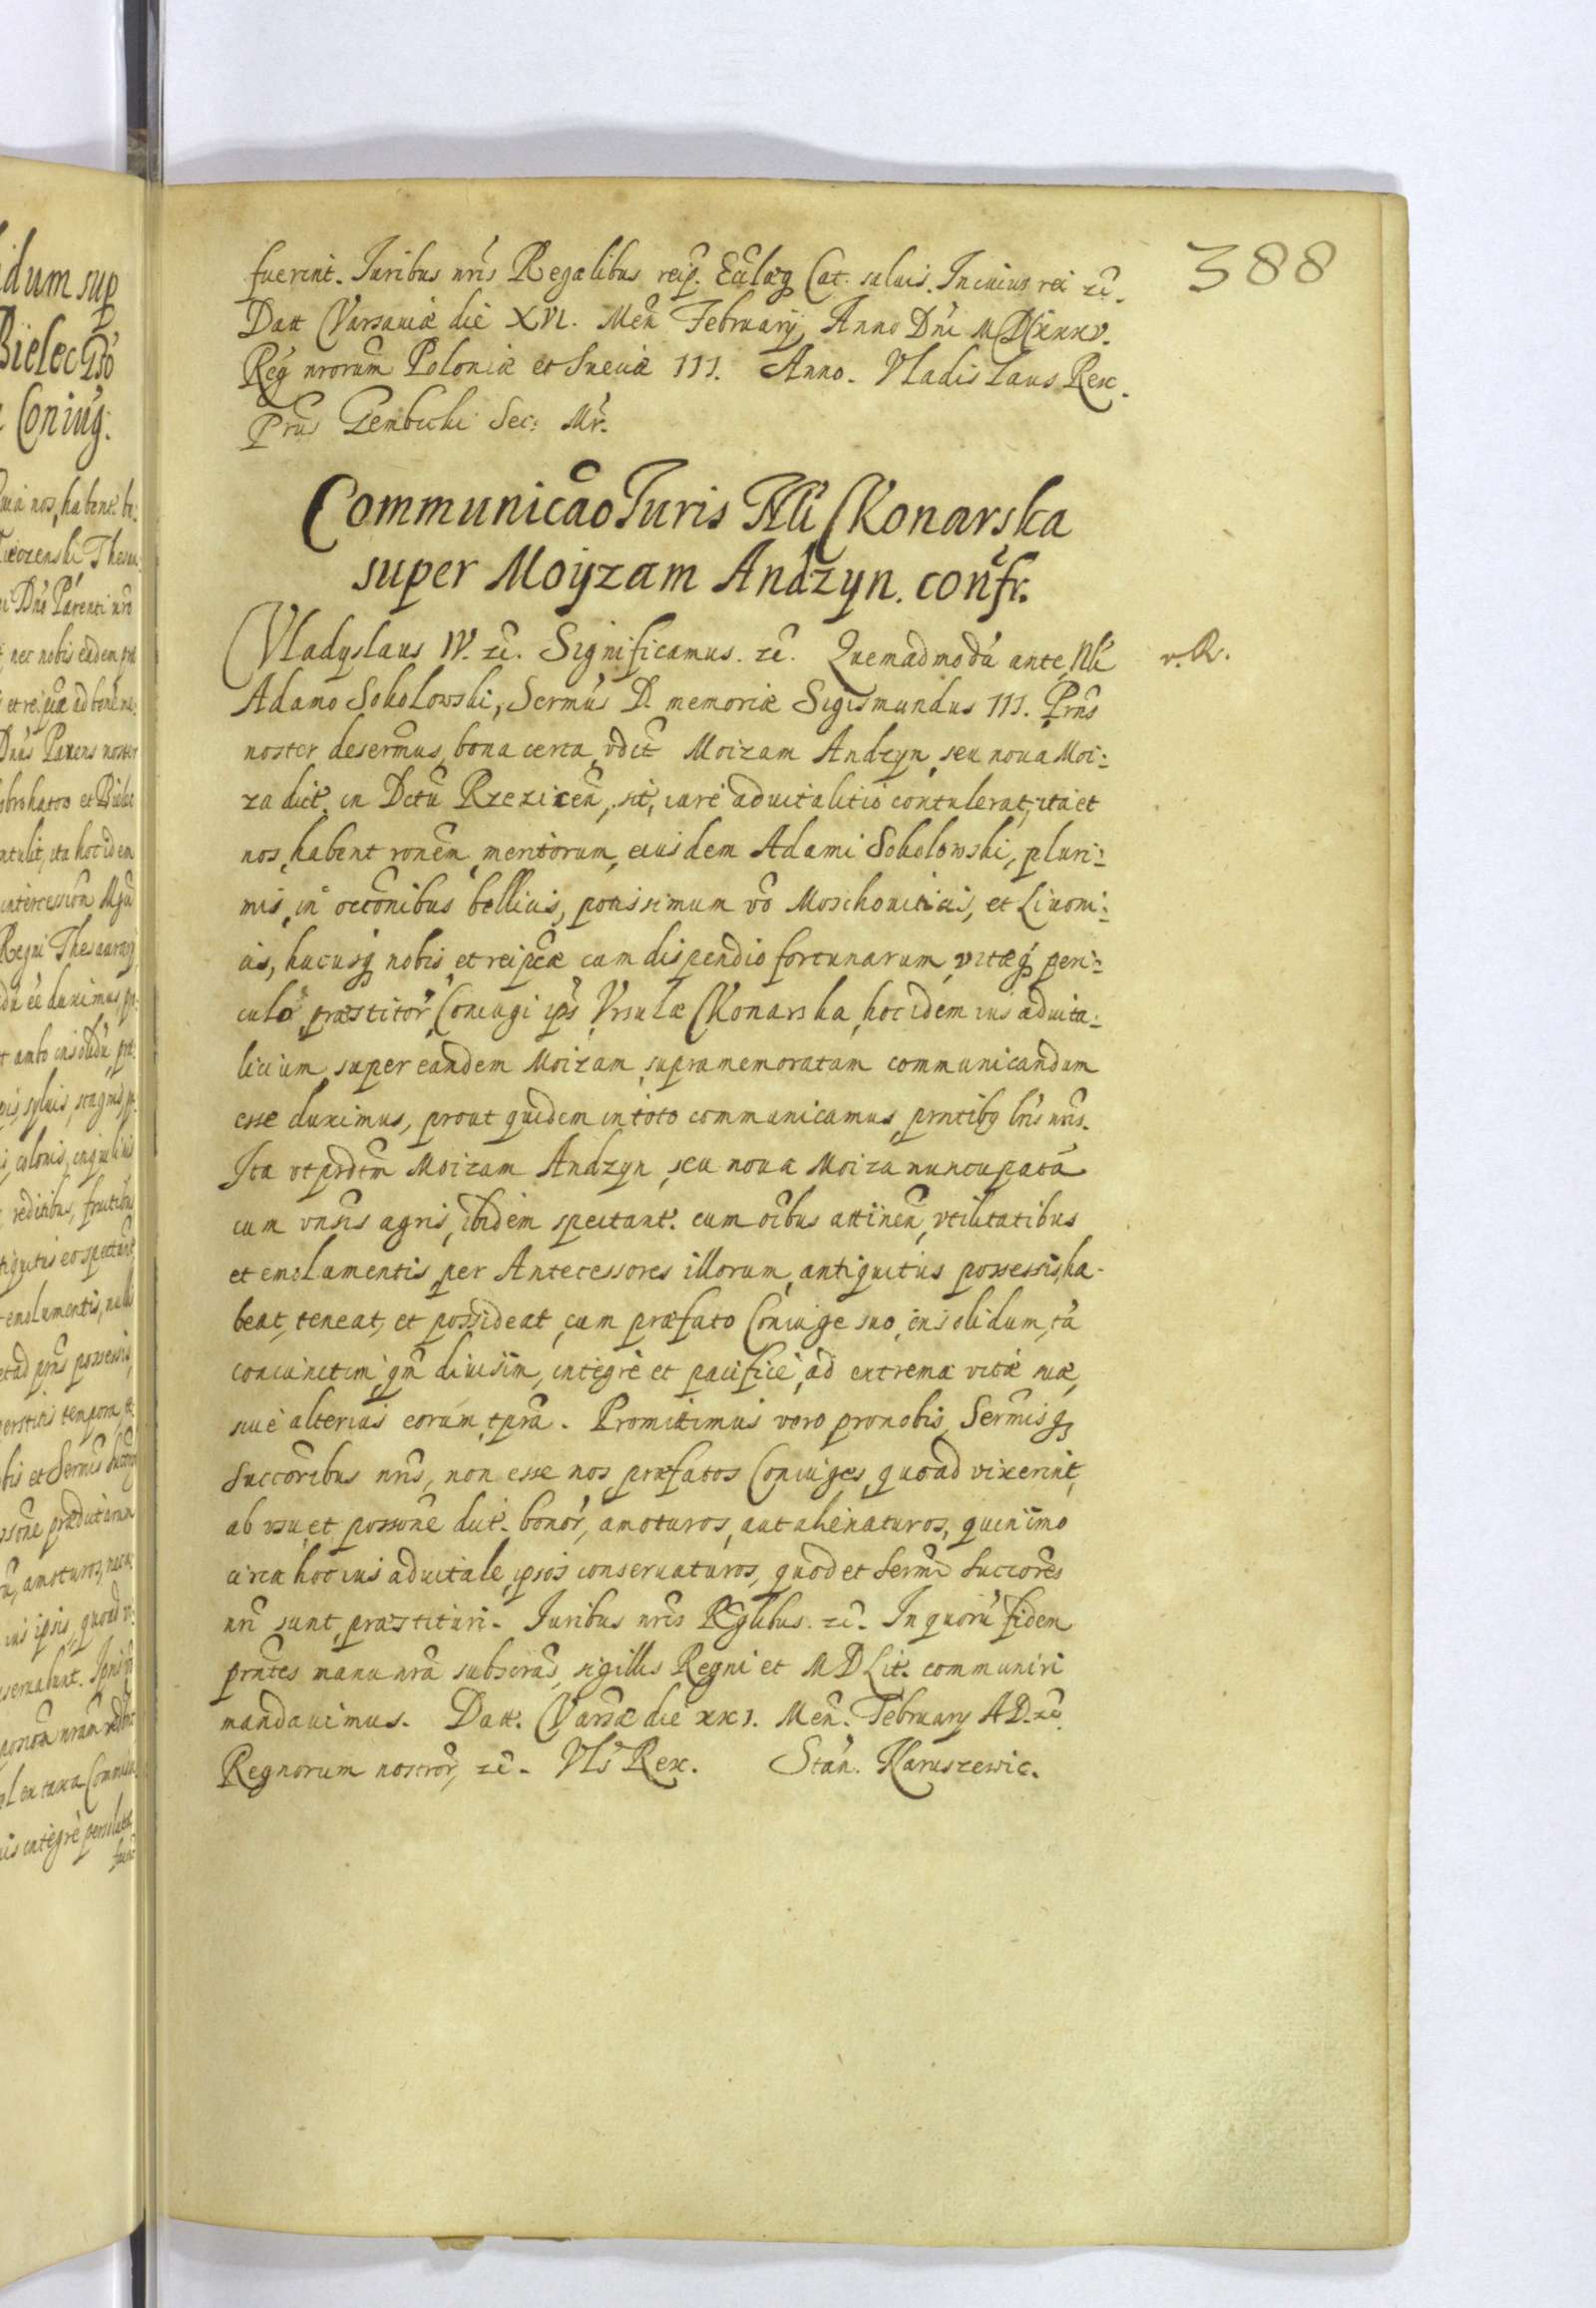 388
fuerint. Iuribus nris Regalibus reip. Ecclæq Cat. saluis. In cuius rei zc.
Datt Varsauiæ die XVI. Men February, Anno Dni MDCxxxv.
Reg nrorum Poloniæ et Sueciæ III. Anno. Vladislaus Rex.
Prus Gembicki Sec: Mr.
Communicao Iuris Nli Konarska
super Moyzam Andzyn. confr.
Vladyslaus IV. zc. Significamus. zc. Quemadmodu ante, Nli
v. R.
Adamo Sokolowski, Sermus D. memoriæ Sigismundus III. Prns
noster desermus, bona certa, vdct Moizam Andzyn, seu noua Moi:
za dict. in Dctu Rzezicen, sit, iure aduitalitio contulerat, ita et
nos, habent ronem meritorum, eiusdem Adami Sokolowski, pluri:
mis, in occonibus bellicis, potissimum vo Moschouiticis, et Liuoni:
cis, hucusq nobis, et reipcæ cum dispendio fortunarum, vitæq peri:
culo præstitor Coniugi ips Vrsulæ Konarska, hoc idem ius aduita:
licium, super eandem Moizam, supramemoratam communicandum
esse duximus, prout quidem in toto communicamus, prntibq lris nris.
Ita vt prdctm Moizam Andzyn, seu noua Moiza nuncupata
cum vnsis agris, ibidem spectant. cum oibus attinen, vtilitatibus
et emolumentis, per Antecessores illorum, antiquitus possessis, ha-
beat, teneat, et possideat, cum præfato Coniuge suo, insolidum, ta
coniunctim, qm diuisim, integre et pacifice, ad extrema vitæ suæ,
siue alterius eorum, tpra. Promittimus vero pro nobis, Sermisq
Succoribus nris, non esse nos, præfatos Coniuges, quoad vixerint,
ab vsu, et possone dict. bonor, amoturos, aut alienaturos, quinimo
circa hoc ius aduitale, ipsos conseruaturos, quod et Sermi Succores
nri sunt, præstituri. Iuribus nris Reglibus. zc. In quoru fidem
prntes manu nra subscras, sigillis Regni et M D Lit. communiri
mandauimus. Datt. Varsæ die xxI. Men. February A D. zc.
Regnorum nostror, zc. Vls Rex. Stan. Naruszewic.